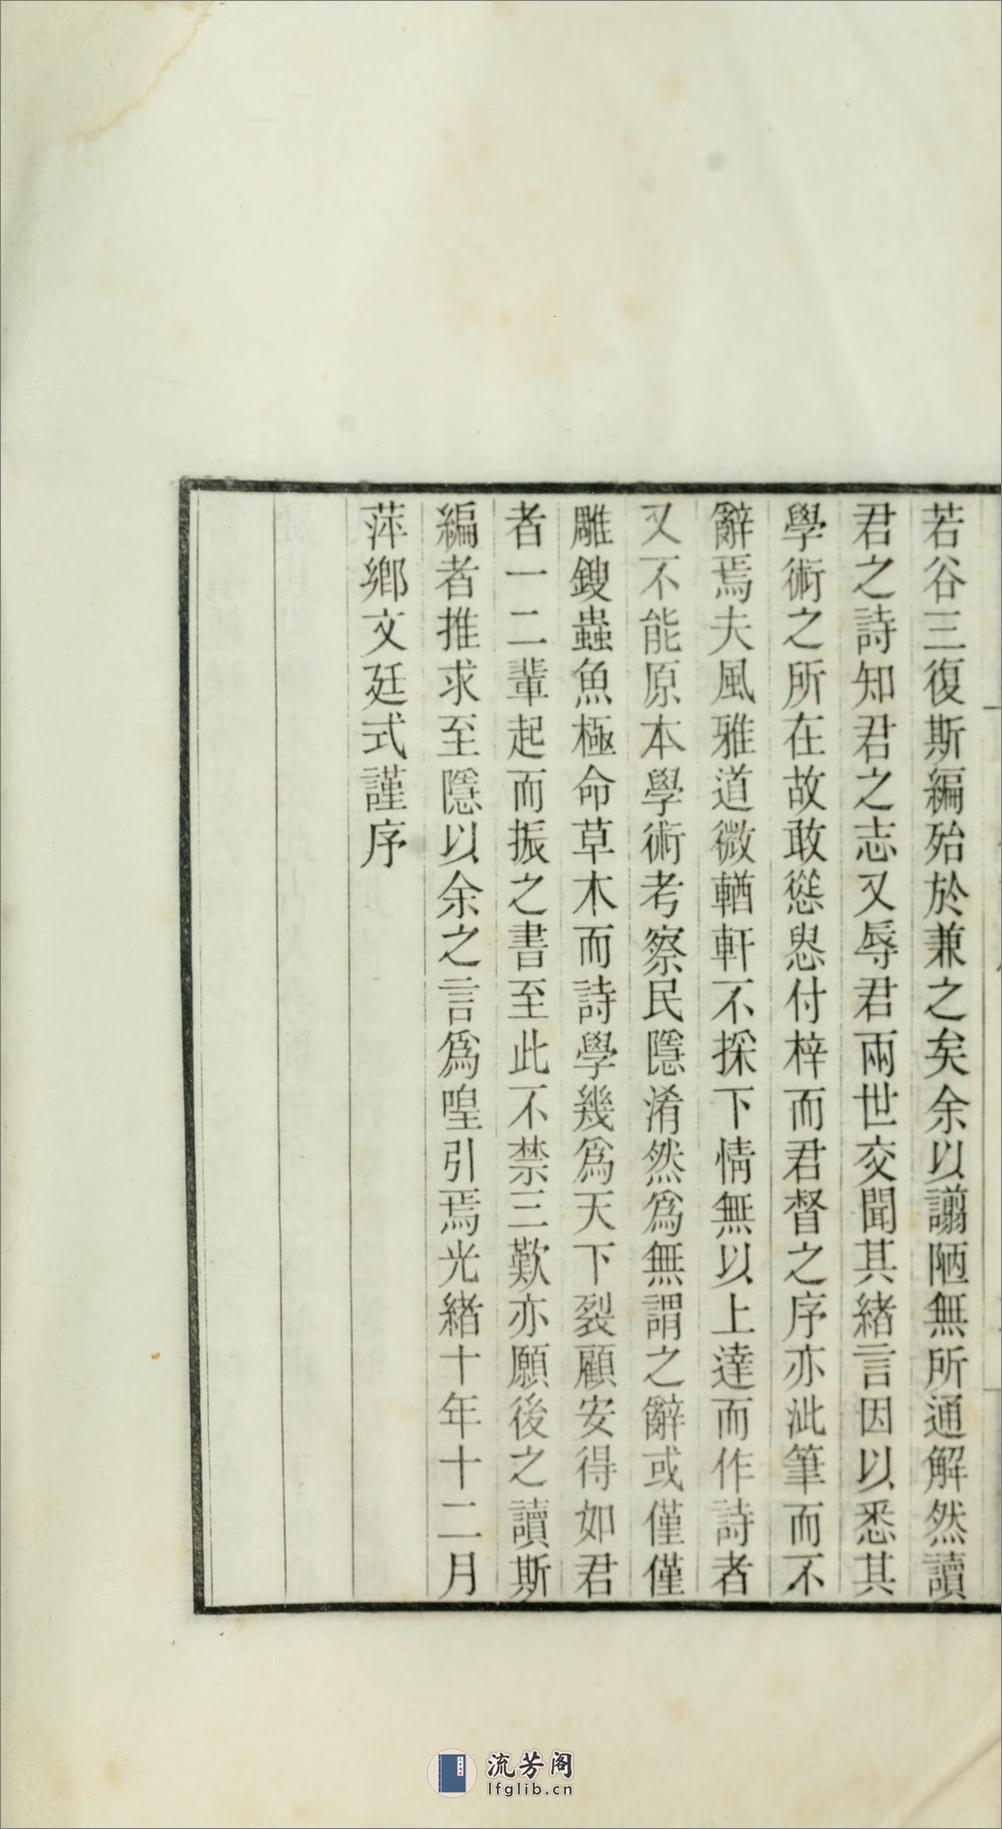 若谷三復斯編殆於兼之矣余以譾陋無所通解然讀
君之詩知君之志又辱君兩世交聞其緒言因以悉其
學術之所在故敢慫恿付梓而君督之序亦泚筆而不
辭焉夫風雅道微輶軒不採下情無以上達而作詩者
又不能原本學術考察民隱淆然為無謂之辭或僅僅
雕鎪蟲魚極命草木而詩學幾為天下裂顧安得如君
者一二輩起而振之書至此不禁三歎亦願後之讀斯
編者推求至隱以余之言為喤引焉光緒十年十二月
萍鄉文廷式謹序
流芳阁
lfglib.cn